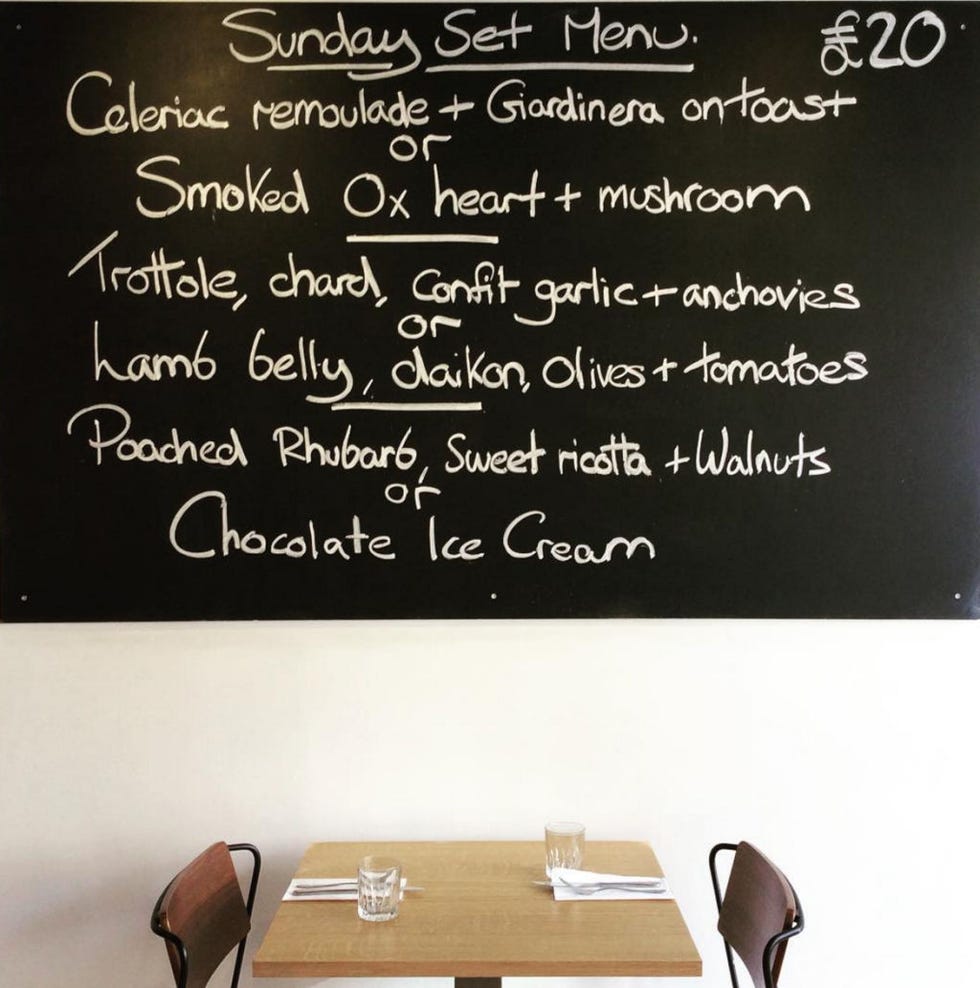 Sunday Set Menu. £20
Celeriac remoulade + Giardinera on toast
or
Smoked Ox heart + mushroom
Trottole, chard, Confit garlic + anchovies
or
Lamb belly, daikon, Olives + tomatoes
Poached Rhubarb, Sweet ricotta + Walnuts
or
Chocolate Ice Cream